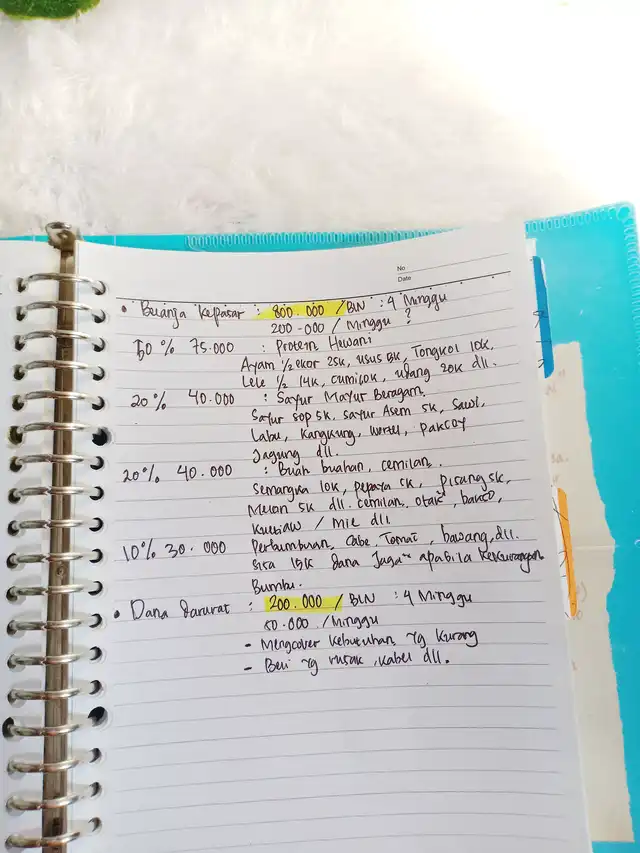 No
Date
• Beianja kepasar : 800.000 / BLN : 4 Minggu
200-000 / Minggu ?
50 % 75.000 : Protein Hewani
Ayam 1/2 ekor 25k, usus 8k, Tongkol 10k,
Lele 1/2 14k, cumi 10k, udang 20k dll.
20% 40.000 : Sayur Mayur Beragam.
Sayur sop 5k, sayur Asem 5k, Sawi,
Labu, Kangkung, wortel, Pakcoy
Jagung dll.
20% 40.000 : Buah buahan, cemilan.
Semangka 10k, pepaya 5k, pisang 5k,
Melon 5k dll. cemilan, otak", bakso,
Kwetiaw / Mie dll
10% 30.000 Perbumbuan, Cabe, Tomat, bawang, dll.
Sisa 15k Dana Jaga" apabila kekurangan
Bumbu.
• Dana darurat : 200.000 / BLN : 4 Minggu
50.000 / Minggu
- Mengcover kebutuhan yg kurang
- Beli yg rusak, kabel dll.